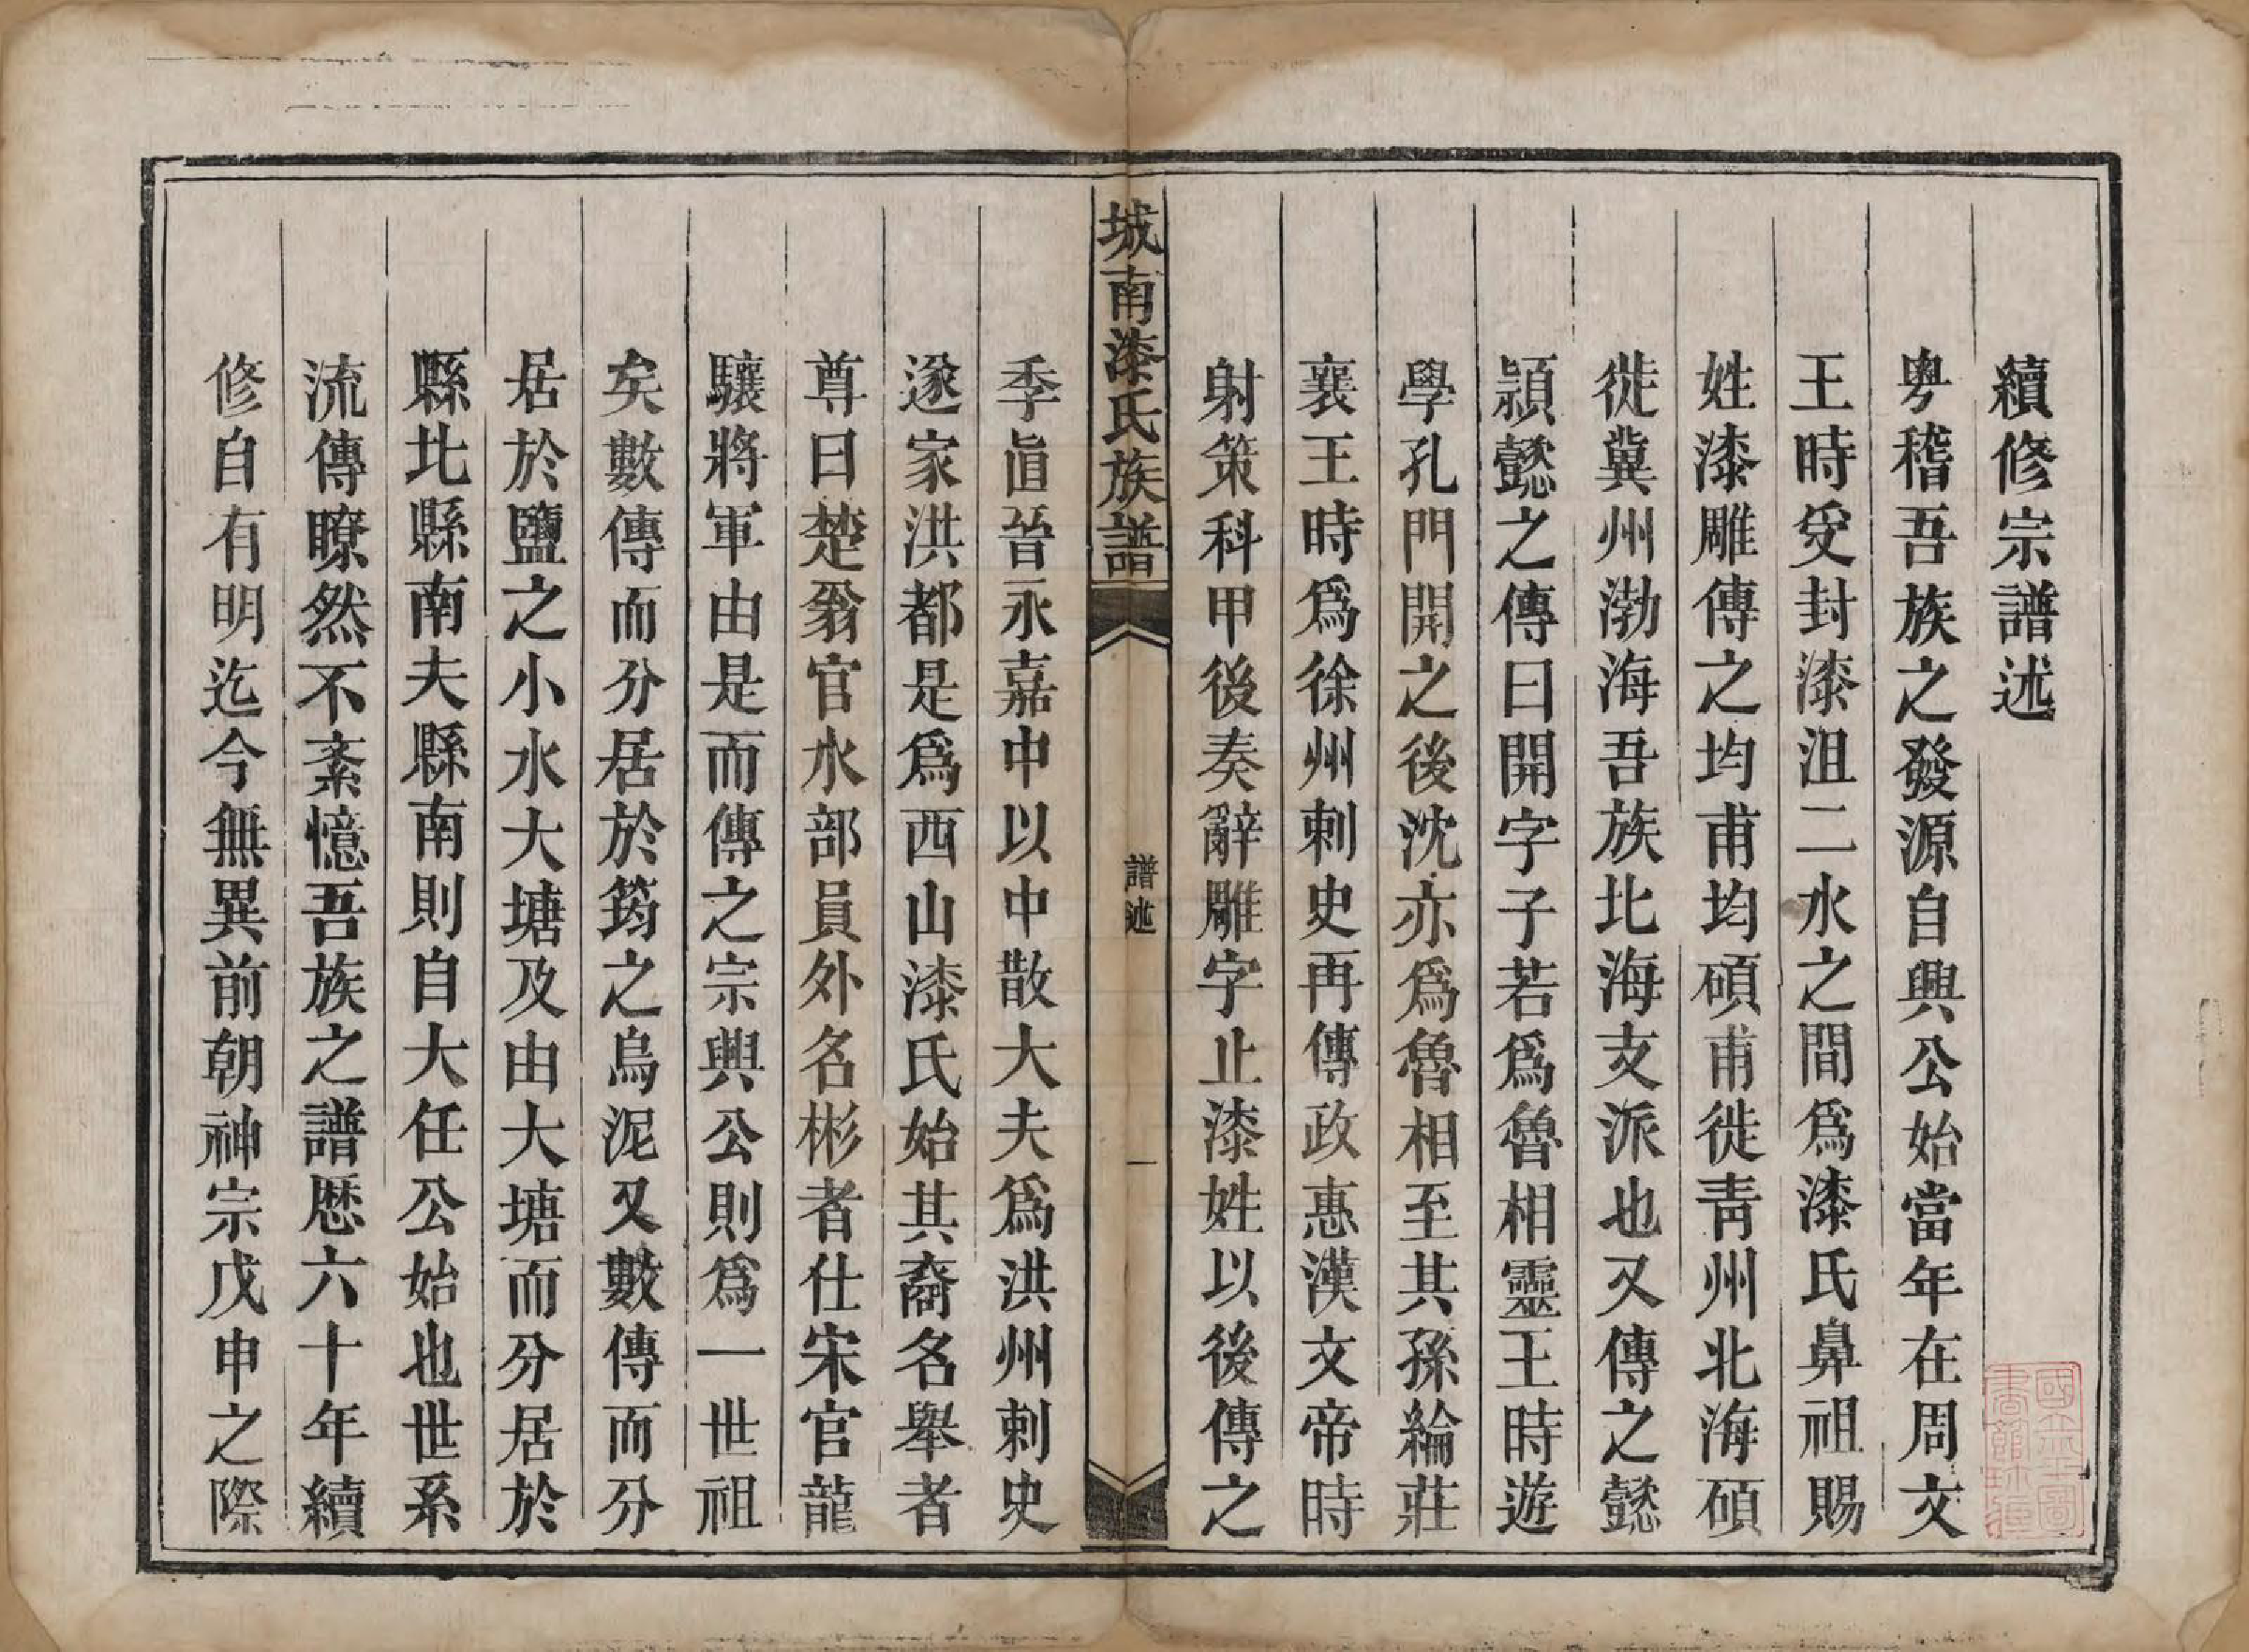 續修宗譜述
粵稽吾族之發源自興公始當年在周文
王時受封漆沮二水之間爲漆氏鼻祖賜
姓漆雕傳之均甫均碩甫徙青州北海碩
徙冀州渤海吾族北海支派也又傳之懿
頴懿之傳曰開字子若爲魯相靈王時遊
學孔門開之後沈亦爲魯相至其孫綸莊
襄王時爲徐州刺史再傳政惠漢文帝時
射策科甲後奏辭雕字止漆姓以後傳之
城南漆氏族譜
譜述
一
季眞晉永嘉中以中散大夫爲洪州刺史
遂家洪都是爲西山漆氏始其裔名舉者
尊曰楚翁官水部員外名彬者仕宋官龍
驤將軍由是而傳之宗興公則爲一世祖
矣數傳而分居於筠之烏泥又數傳而分
居於鹽之小水大塘及由大塘而分居於
縣北縣南夫縣南則自大任公始也世系
流傳瞭然不紊憶吾族之譜歷六十年續
修自有明迄今無異前朝神宗戊申之際
國立北平圖書館珍藏